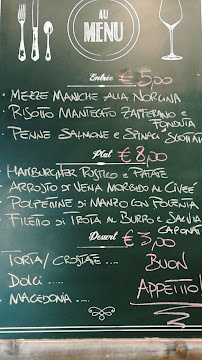 AU
MENU
Entrée € 5,00
- MEZZE MANICHE ALLA NORCINA
- RISOTTO MANTECATO ZAFFERANO E FONDUTA
- PENNE SALMONE E SPINACI SCOTTATI
Plat € 8,00
- HAMBURGHER RUSTICO E PATATE
- ARROSTO DI VENA MORBIDO AL CIVEÉ
- POLPETTINE DI MANZO CON POLENTA
- FILETTO DI TROTA AL BURRO E SALVIA
CAPONATA
Dessert € 3,00
TORTA/ CROSTATE ....
BUON
DOLCI ....
APPETITO!
- MACEDONIA ....